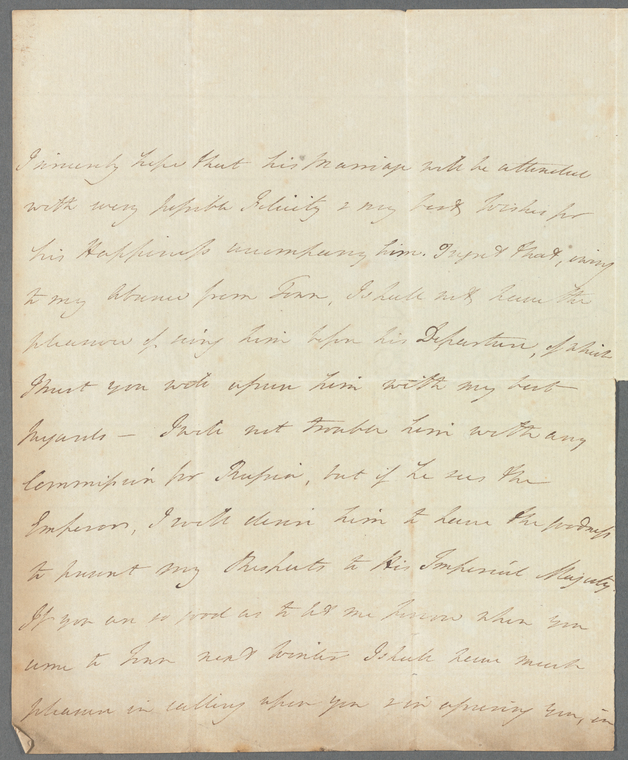 I sincerely hope that his Marriage will be attended
with every possible Felicity & my best Wishes for
his Happiness accompany him. I regret that, owing
to my Absence from Town, I shall not have the
pleasure of seeing him before his Departure, of which
I trust you will assure him with my best
Regards — I will not trouble him with any
Commission for Russia, but if he sees the
Emperor, I will desire him to have the goodness
to present my Respects to His Imperial Majesty.
If you are so good as to let me know when you
come to Town next Winter I shall have much
pleasure in calling upon you & in assuring you, in